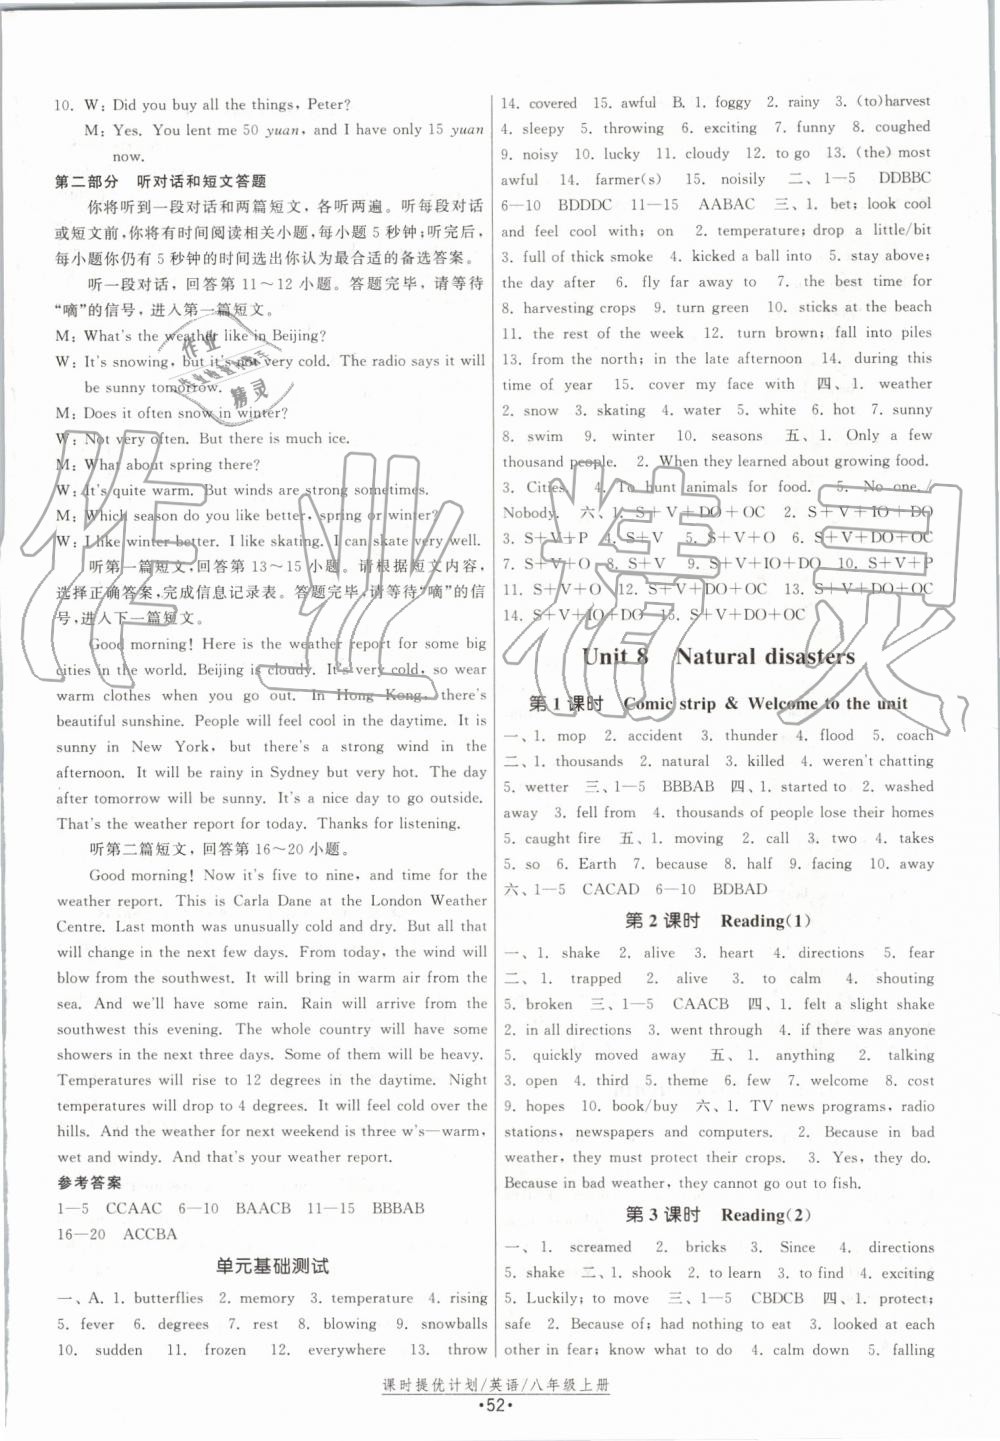 10. W: Did you buy all the things, Peter?
M: Yes. You lent me 50 yuan, and I have only 15 yuan
now.
第二部分 听对话和短文答题
你将听到一段对话和两篇短文,各听两遍。听每段对话
或短文前,你将有时间阅读相关小题,每小题 5 秒钟;听完后,
每小题你仍有 5 秒钟的时间选出你认为最合适的备选答案。
听一段对话,回答第 11~12 小题。答题完毕,请等待
“嘀”的信号,进入第一篇短文。
M: What's the weather like in Beijing?
W: It's snowing, but it's not very cold. The radio says it will
be sunny tomorrow.
M: Does it often snow in winter?
W: Not very often. But there is much ice.
M: What about spring there?
W: It's quite warm. But winds are strong sometimes.
M: Which season do you like better, spring or winter?
W: I like winter better. I like skating. I can skate very well.
听第一篇短文,回答第 13~15 小题。请根据短文内容,
选择正确答案,完成信息记录表。答题完毕,请等待“嘀”的信
号,进入下一篇短文。
Good morning! Here is the weather report for some big
cities in the world. Beijing is cloudy today, so wear
warm clothes when you go out. In Hong Kong, there's
beautiful sunshine. People will feel cool in the daytime. It is
sunny in New York, but there's a strong wind in the
afternoon. It will be rainy in Sydney but very hot. The day
after tomorrow will be sunny. It's a nice day to go outside.
That's the weather report for today. Thanks for listening.
听第二篇短文,回答第 16~20 小题。
Good morning! Now it's five to nine, and time for the
weather report. This is Carla Dane at the London Weather
Centre. Last month was unusually cold and dry. But all that
will change in the next few days. From today, the wind will
blow from the southwest. It will bring in warm air from the
sea. And we'll have some rain. Rain will arrive from the
southwest this evening. The whole country will have some
showers in the next three days. Some of them will be heavy.
Temperatures will rise to 12 degrees in the daytime. Night
temperatures will drop to 4 degrees. It will feel cold over the
hills. And the weather for next weekend is three w's—warm,
wet and windy. And that's your weather report.
参考答案
1—5 CCAAC 6—10 BAACB 11—15 BBBAB
16—20 ACCBA
单元基础测试
一、A. 1. butterflies 2. memory 3. temperature 4. rising
5. fever 6. degrees 7. rest 8. blowing 9. snowballs
10. sudden 11. frozen 12. everywhere 13. throw
14. covered 15. awful B. 1. foggy 2. rainy 3. (to)harvest
4. sleepy 5. throwing 6. exciting 7. funny 8. coughed
9. noisy 10. lucky 11. cloudy 12. to go 13. (the) most
awful 14. farmer(s) 15. noisily 二、1—5 DDBBC
6—10 BDDDC 11—15 AABAC 三、1. bet; look cool
and feel cool with; on 2. temperature; drop a little/bit
3. full of thick smoke 4. kicked a ball into 5. stay above;
the day after 6. fly far away to 7. the best time for
8. harvesting crops 9. turn green 10. sticks at the beach
11. the rest of the week 12. turn brown; fall into piles
13. from the north; in the late afternoon 14. during this
time of year 15. cover my face with 四、1. weather
2. snow 3. skating 4. water 5. white 6. hot 7. sunny
8. swim 9. winter 10. seasons 五、1. Only a few
thousand people. 2. When they learned about growing food.
3. Cities. 4. To hunt animals for food. 5. No one./
Nobody. 六、1. S+V+DO+OC 2. S+V+IO+DO
3. S+V+P 4. S+V 5. S+V+O 6. S+V+DO+OC
7. S+V+O 8. S+V 9. S+V+IO+DO 10. S+V+P
11. S+V+O 12. S+V+DO+OC 13. S+V+DO+OC
14. S+V+IO+DO 15. S+V+DO+OC
Unit 8 Natural disasters
第 1 课时 Comic strip & Welcome to the unit
一、1. mop 2. accident 3. thunder 4. flood 5. coach
二、1. thousands 2. natural 3. killed 4. weren't chatting
5. wetter 三、1—5 BBBAB 四、1. started to 2. washed
away 3. fell from 4. thousands of people lose their homes
5. caught fire 五、1. moving 2. call 3. two 4. takes
5. so 6. Earth 7. because 8. half 9. facing 10. away
六、1—5 CACAD 6—10 BDBAD
第 2 课时 Reading(1)
一、1. shake 2. alive 3. heart 4. directions 5. fear
二、1. trapped 2. alive 3. to calm 4. shouting
5. broken 三、1—5 CAACB 四、1. felt a slight shake
2. in all directions 3. went through 4. if there was anyone
5. quickly moved away 五、1. anything 2. talking
3. open 4. third 5. theme 6. few 7. welcome 8. cost
9. hopes 10. book/buy 六、1. TV news programs, radio
stations, newspapers and computers. 2. Because in bad
weather, they must protect their crops. 3. Yes, they do.
Because in bad weather, they cannot go out to fish.
第 3 课时 Reading(2)
一、1. screamed 2. bricks 3. Since 4. directions
5. shake 二、1. shook 2. to learn 3. to find 4. exciting
5. Luckily; to move 三、1—5 CBDCB 四、1. protect;
safe 2. Because of; had nothing to eat 3. looked at each
other in fear; know what to do 4. calm down 5. falling
课时提优计划/英语/八年级上册
·52·
作业精灵